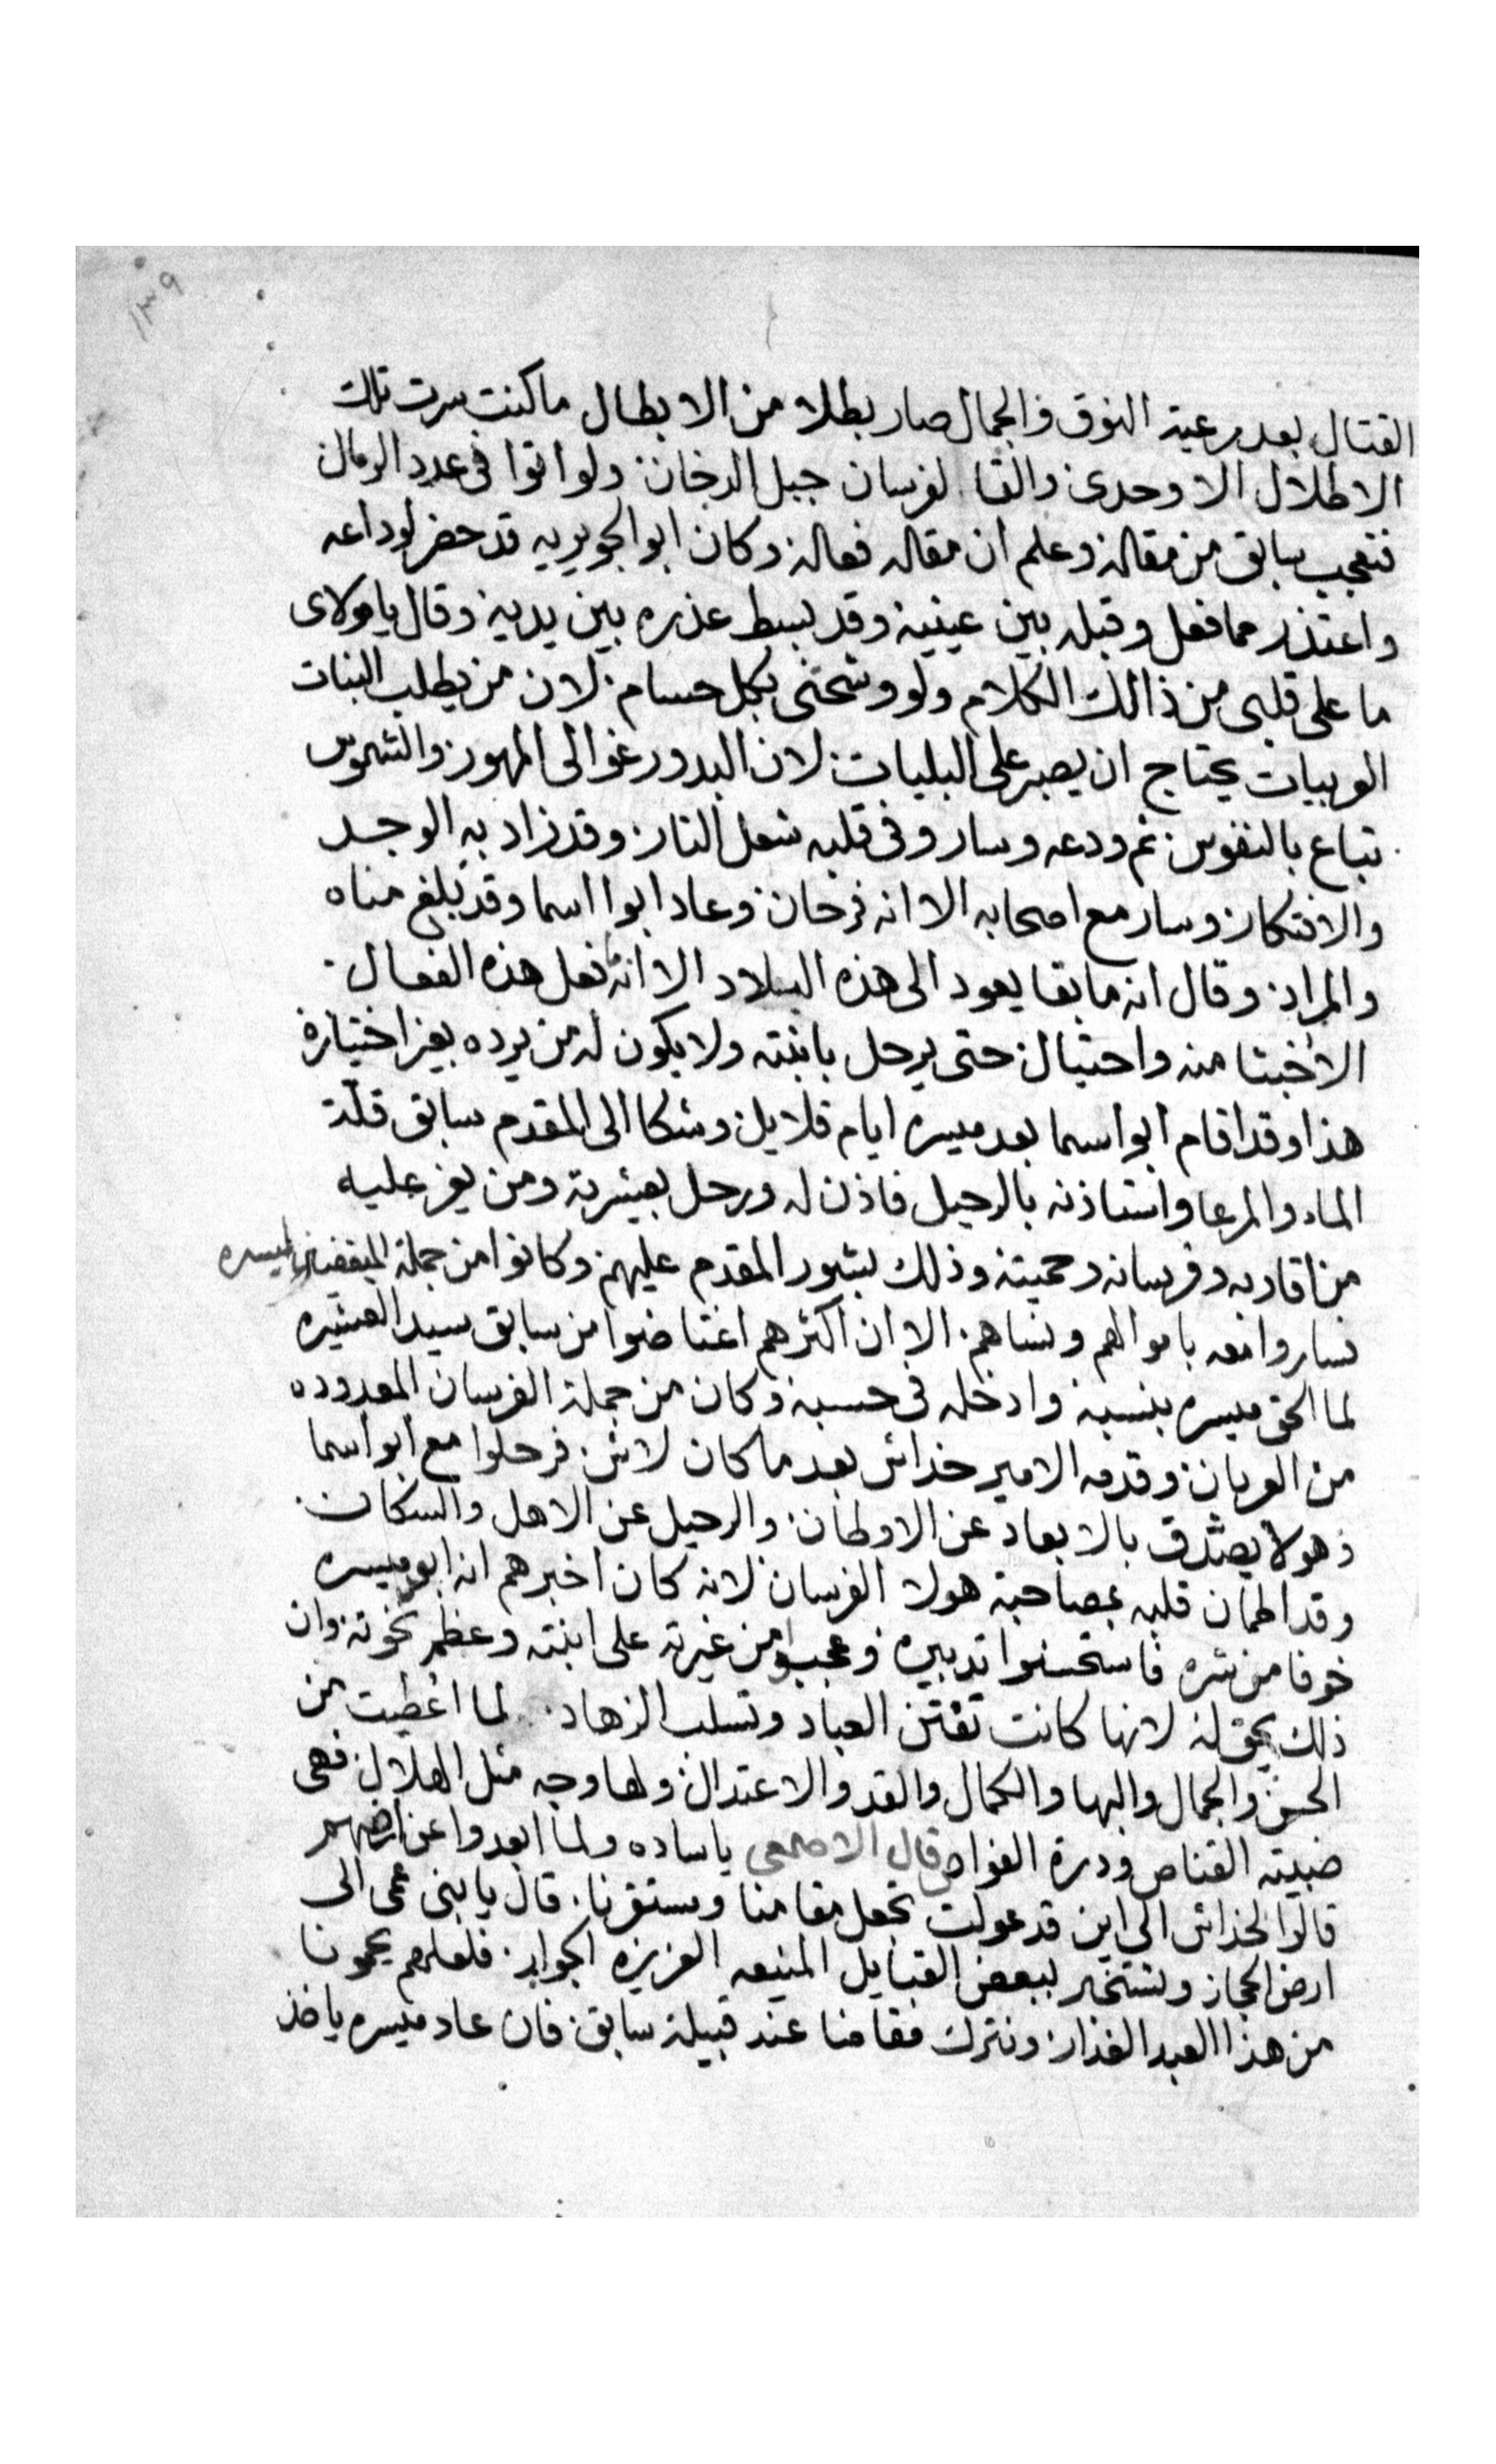 ١٣٩
القتال بعد رعية النوق والجمال صار بطلا من الابطال ما كنت سرت تلك
الاطلال الا وحدى والقا لفرسان جبل الدخان ولو اتوا فى عدد الرمال
فتعجب سابق من مقاله وعلم ان مقاله فعاله وكان ابو الجويريه قد حضر لوداعه
واعتذر مما فعل وقبله بين عينيه وقد بسط عذره بين يديه وقال يا مولاى
ما على قلبى من ذالك الكلام ولو وشحتنى بكل حسام لان من يطلب البنات
العربيات يحتاج ان يصبر على البليات لان البدور غوالى المهور والشموس
تباع بالنفوس ثم ودعه وسار وفى قلبه شعل النار وقد زاد به الوجد
والافتكار وسار مع اصحابه الا انه فرحان وعاد ابوا اسما وقد بلغ مناه
والمراد وقال انه ما بقا يعود الى هذه البلاد الا انه ما فعل هذه الفعال
الا خبثا منه واحتيال حتى يرحل بابنته ولا يكون له من يرده بغير اختياره
هذا وقد اقام ابو اسما بعد ميسره ايام قلايل وشكا الى المقدم سابق قلة
الماء والمرعا واستاذنه بالرحيل فاذن له ورحل بعشيرته ومن يعز عليه
من اقاربه وفرسانه وحميته وذلك بشور المقدم عليهم وكانوا من جملة المبغضين لميسره
فساروا معه باموالهم ونساهم الا ان اكثرهم اغتاضوا من سابق سيد العشيره
لما الحق ميسره بنسبه وادخله فى حسبه وكان من جملة الفرسان المعدوده
من العربان وقدمه الامير خداش بعد ما كان لاش فرحلوا مع ابو اسما
وهو لا يصدق بالابعاد عن الاوطان والرحيل عن الاهل والسكان
وقد اطمان قلبه بمصاحبة هولا الفرسان لانه كان اخبرهم انه ابو ميسره
خوفا من شره فاستحسنوا تدبيره وعجبوا من غيرته على ابنته وعظم نخوته وان
ذلك يحق له لانها كانت تفتن العباد وتسلب الزهاد لما اعطيت من
الحسن والجمال والبها والكمال والقد والاعتدال ولها وجه مثل الهلال فهى
ضبيته القناص ودرة الغواص قال الاصمعى يا ساده ولما ابعدوا عن ارضهم
قالوا لخداش الى اين قد عولت تجعل مقامنا ومستقرنا قال يا بنى عمى الى
ارض الحجاز ونستخير لبعض القبايل المنيعه العزيزه الجوار فلعلهم يحمونا
من هذا العبد الغدار ونترك مقامنا عند قبيلة سابق فان عاد ميسره ياخذ